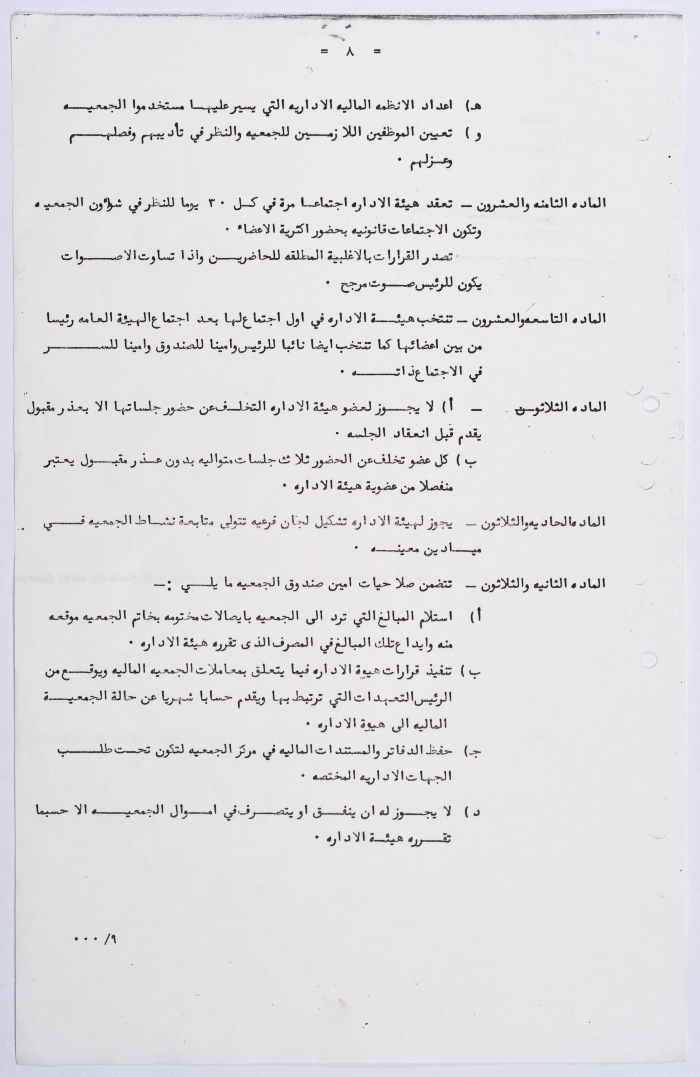 = ٨ =
هـ) اعداد الانظمه الماليه الاداريه التي يسير عليها مستخدموا الجمعيه
و) تعيين الموظفين اللازمين للجمعيه والنظر في تأديبهم وفصلهم
وعزلهم ٠
الماده الثامنه والعشرون ــ تعقد هيئة الاداره اجتماعا مرة في كل ٣٠ يوما للنظر في شؤون الجمعيه
وتكون الاجتماعات قانونيه بحضور اكثرية الاعضاء ٠
تصدر القرارات بالاغلبية المطلقه للحاضرين واذا تساوت الاصوات
يكون للرئيس صوت مرجح ٠
الماده التاسعه والعشرون ــ تنتخب هيئة الاداره في اول اجتماع لها بعد اجتماع الهيئة العامه رئيسا
من بين اعضائها كما تنتخب ايضا نائبا للرئيس وامينا للصندوق وامينا للسر
في الاجتماع ذاته ٠
الماده الثلاثون ــ أ) لا يجوز لعضو هيئة الاداره التخلف عن حضور جلساتها الا بعذر مقبول
يقدم قبل انعقاد الجلسه ٠
ب) كل عضو تخلف عن الحضور ثلاث جلسات متواليه بدون عذر مقبول يعتبر
منفصلا من عضوية هيئة الاداره ٠
الماده الحاديه والثلاثون ــ يجوز لهيئة الاداره تشكيل لجان فرعيه تتولى متابعة نشاط الجمعيه في
ميادين معينه ٠
الماده الثانيه والثلاثون ــ تتضمن صلاحيات امين صندوق الجمعيه ما يلي :ــ
أ) استلام المبالغ التي ترد الى الجمعيه بايصالات مختومه بخاتم الجمعيه موقعه
منه وايداع تلك المبالغ في المصرف الذى تقرره هيئة الاداره ٠
ب) تنفيذ قرارات هيوة الاداره فيما يتعلق بمعاملات الجمعيه الماليه ويوقع من
الرئيس التعهدات التي ترتبط بها ويقدم حسابا شهريا عن حالة الجمعية
الماليه الى هيوة الاداره ٠
جـ) حفظ الدفاتر والمستندات الماليه في مركز الجمعيه لتكون تحت طلب
الجهات الاداريه المختصه ٠
د) لا يجوز له ان ينفق او يتصرف في اموال الجمعيه الا حسبما
تقرره هيئة الاداره ٠
٩/ ٠٠٠